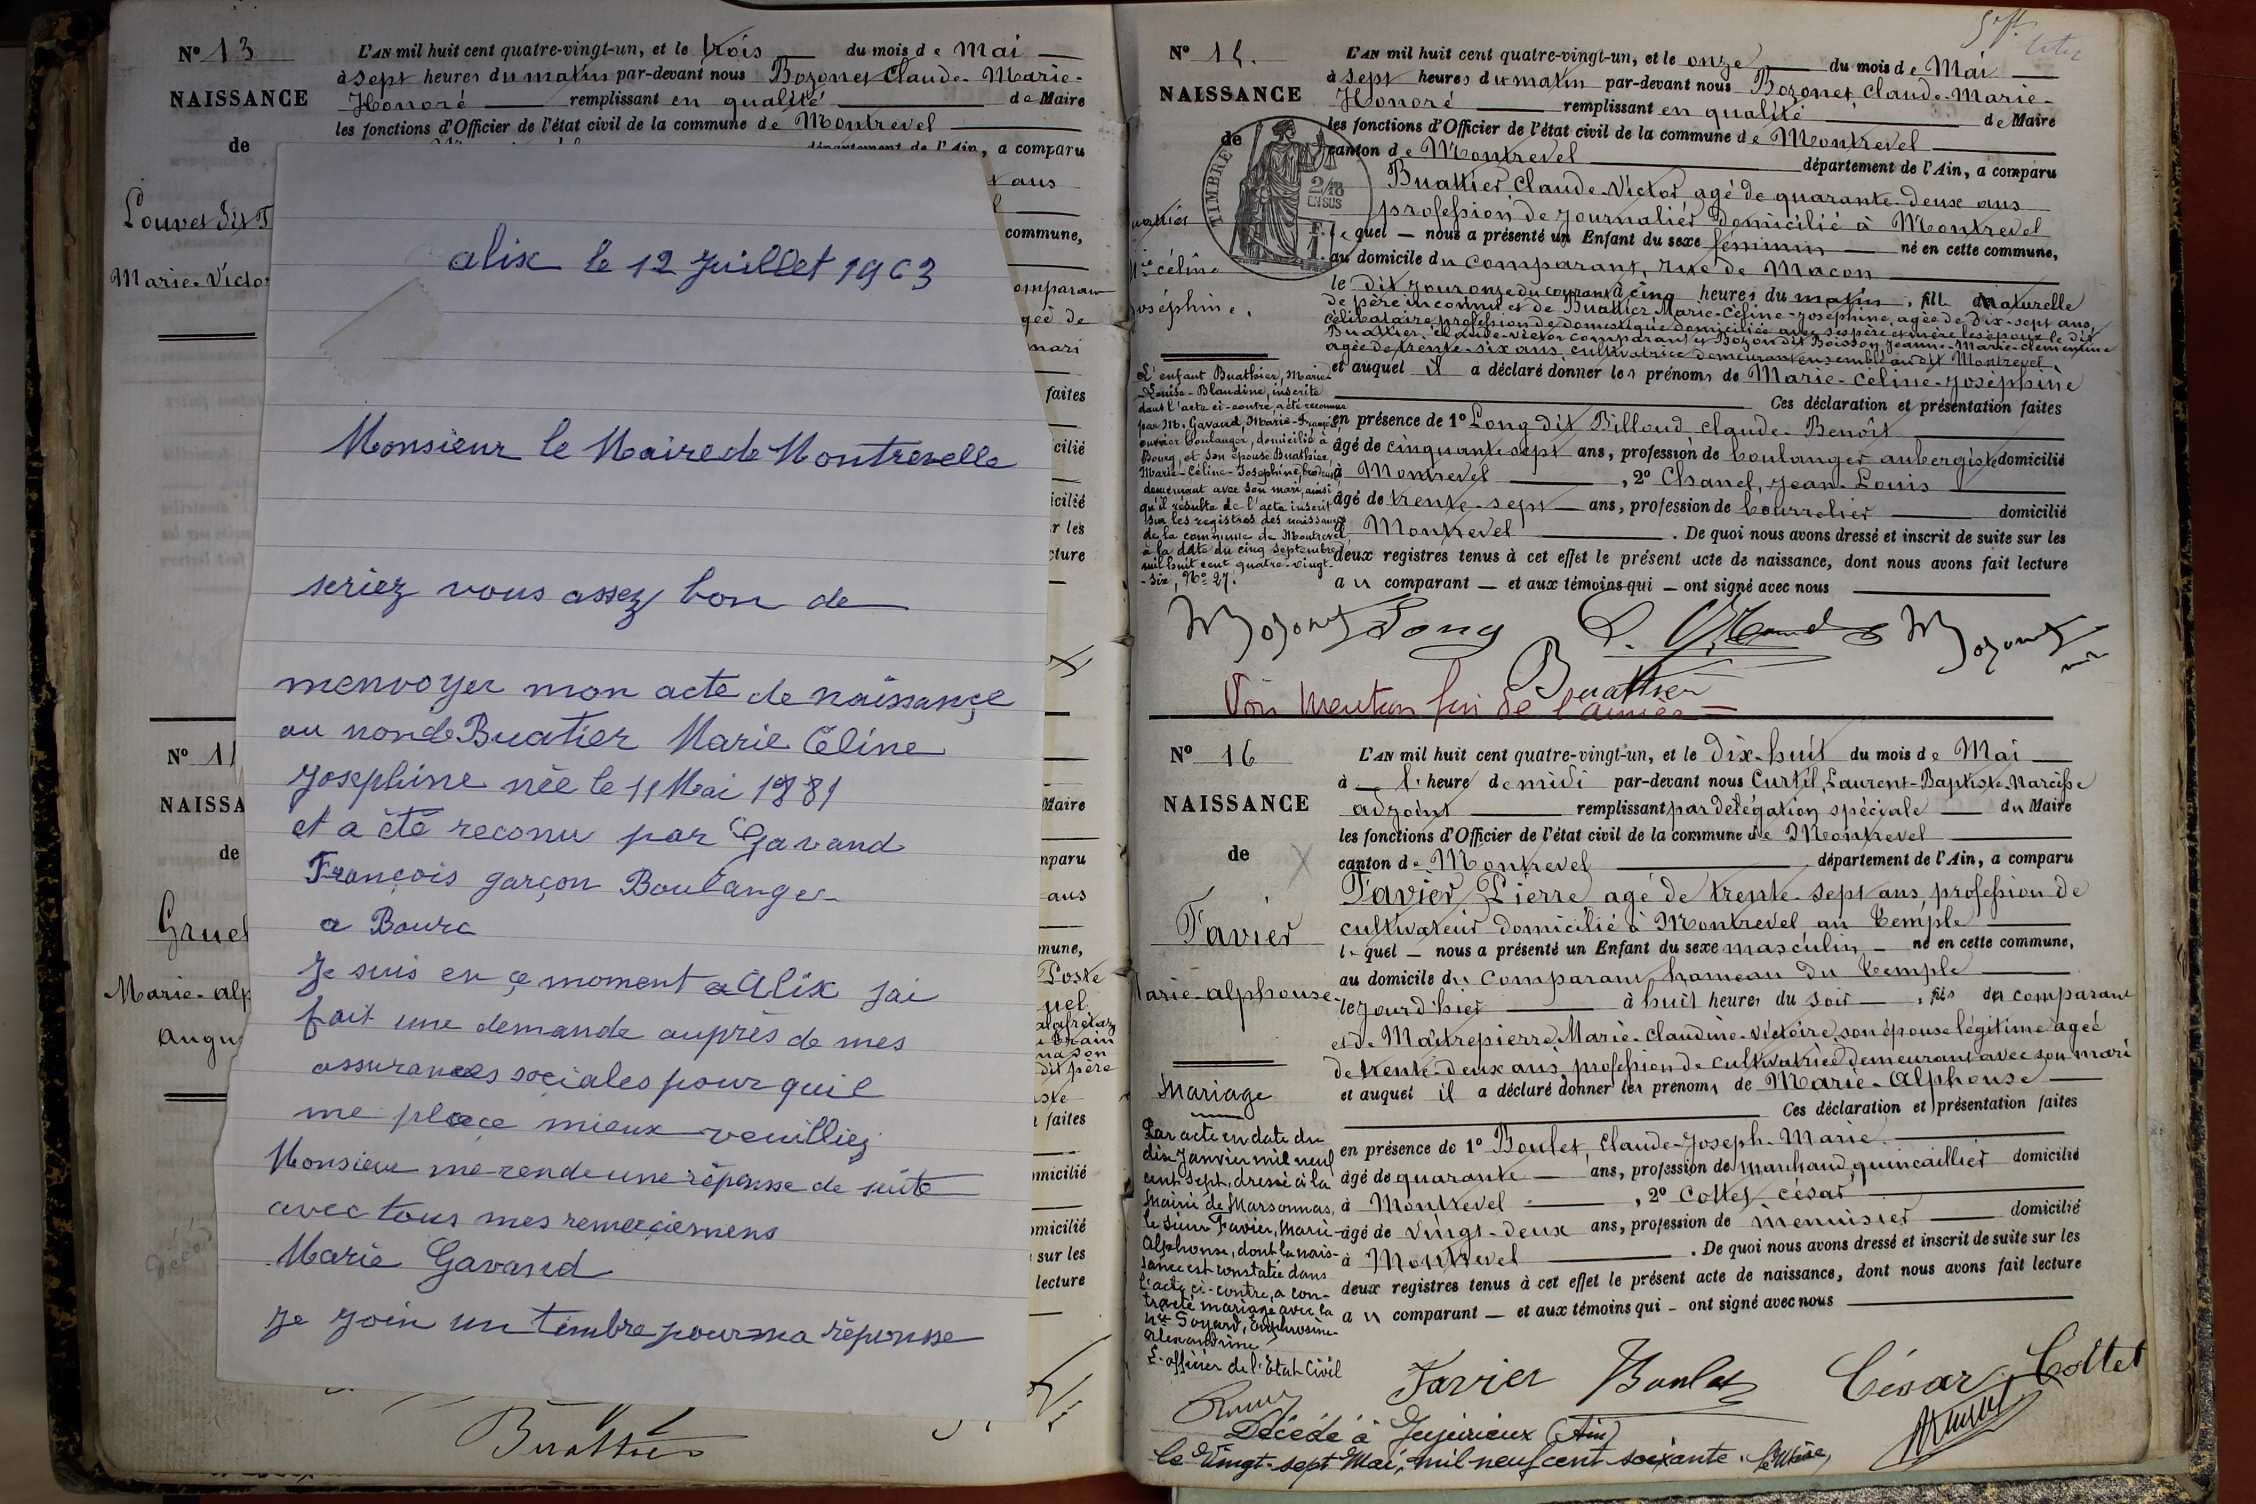 Nº 13
L'AN mil huit cent quatre-vingt-un, et le trois du mois de Mai
à sept heures du matin par-devant nous Bozonet Claude-Marie-
NAISSANCE
Honoré remplissant en qualité de Maire
les fonctions d'Officier de l'état civil de la commune de Montrevel
de
département de l'Ain, a comparu
ans
Louvet dit
commune,
Marie-Victo
comparan
gée de
mari
faites
cilié
icilié
r les
cture
Nº 1
NAISSA
Maire
de
mparu
ans
Gruel
mune,
Poste
uel
Marie-alp
augu
dit père
faites
omicilié
omicilié
sur les
lecture
Buathier
alix le 12 Juillet 1963
Monsieur le Maire de Montrevelle
seriez vous assez bon de
menvoyer mon acte de naissançe
au nom de Buatier Marie Céline
Josephine née le 11 Mai 1881
et a été reconu par Gavand
François garçon Boulanger
a Bourc
Je suis en çe moment a Alix jai
fait une demande auprès de mes
assurances soçiales pour quil
me plaçe mieux veuilliez
Monsieur me rende une réponsse de suite
avec tous mes remerçiemens
Marie Gavand
Je join un timbre pour ma réponsse
Nº 15.
L'AN mil huit cent quatre-vingt-un, et le onze du mois de Mai
à sept heures du matin par-devant nous Bozonet Claude-Marie-
NAISSANCE
Honoré remplissant en qualité de Maire
les fonctions d'Officier de l'état civil de la commune de Montrevel
de
canton de Montrevel département de l'Ain, a comparu
TIMBRE
2/10
EN SUS
Buathier Claude-Victor agé de quarante-deux ans
profession de journalier domicilié à Montrevel
lequel — nous a présenté un Enfant du sexe féminin né en cette commune,
au domicile du comparant, rue de Macon
céline
Joséphine.
le dit jour onze du courant à cinq heures du matin, fille naturelle
de père inconnu et de Buathier Marie-Céline-Joséphine, agée de dix-sept ans,
célibataire profession de domestique domiciliée avec ses père et mère les époux le dit
Buathier, Claude-Victor comparant et Bozon dit Boisson, Jeanne-Marie-Clémentine
agée de trente-six ans, cultivatrice demeurant ensemble au dit Montrevel,
et auquel il a déclaré donner les prénoms de Marie-Céline-Joséphine
Ces déclaration et présentation faites
en présence de 1º Long dit Billoud Claude-Benoît
âgé de cinquante-sept ans, profession de boulanger aubergiste domicilié
à Montrevel, 2º Chanel, Jean-Louis
âgé de trente-sept ans, profession de bourrelier domicilié
à Montrevel. De quoi nous avons dressé et inscrit de suite sur les
deux registres tenus à cet effet le présent acte de naissance, dont nous avons fait lecture
au comparant — et aux témoins qui — ont signé avec nous
L'enfant Buathier, Marie
Louise-Blandine, inscrite
dans l'acte ci-contre, a été reconnue
par M. Gavand, Marie-François,
ouvrier boulanger, domicilié à
Bourg, et son épouse Buathier
Marie-Céline-Joséphine,
demeurant avec son mari, ainsi
qu'il résulte de l'acte inscrit
sur les registres des naissances
de la commune de Montrevel
à la date du cinq septembre
mil huit cent quatre-vingt
-six, Nº 27.
Bozonet Long Bozonet
Buathier
Voir mention fin de l'année
Nº 16
L'AN mil huit cent quatre-vingt-un, et le dix-huit du mois de Mai
à l'heure de midi par-devant nous Curtil, Laurent-Baptiste-Narcisse
NAISSANCE
adjoint remplissant par délégation spéciale du Maire
les fonctions d'Officier de l'état civil de la commune de Montrevel
de
canton de Montrevel département de l'Ain, a comparu
Favier Pierre agé de trente-sept ans, profession de
Favier
cultivateur domicilié à Montrevel au Temple
lequel — nous a présenté un Enfant du sexe masculin né en cette commune,
au domicile du comparant hameau du Temple
Marie-alphonse
le jour d'hier à huit heures du soir, fils du comparant
et de Maîtrepierre Marie-Claudine-Victoire, son épouse légitime agée
de trente-deux ans, profession de cultivatrice demeurant avec son mari
et auquel il a déclaré donner les prénoms de Marie-Alphonse
Ces déclaration et présentation faites
en présence de 1º Boulet, Claude-Joseph-Marie
âgé de quarante ans, profession de marchand quincaillier domicilié
à Montrevel, 2º Cottet César
âgé de vingt-deux ans, profession de menuisier domicilié
à Montrevel. De quoi nous avons dressé et inscrit de suite sur les
deux registres tenus à cet effet le présent acte de naissance, dont nous avons fait lecture
au comparant — et aux témoins qui — ont signé avec nous
Mariage
Par acte en date du
dix Janvier mil neuf
cent sept, dressé à la
Mairie de Marsonnas,
le sieur Favier, Marie-
Alphonse, dont la nais-
sance est constatée dans
l'acte ci-contre, a con-
tracté mariage avec la
Goyard, Euphrosine-
Alexandrine
L'officier de l'Etat Civil
Favier Boulet César Cottet
Décédé à Jujurieux (Ain)
le Vingt-sept Mai, mil neuf cent soixante. le Maire,